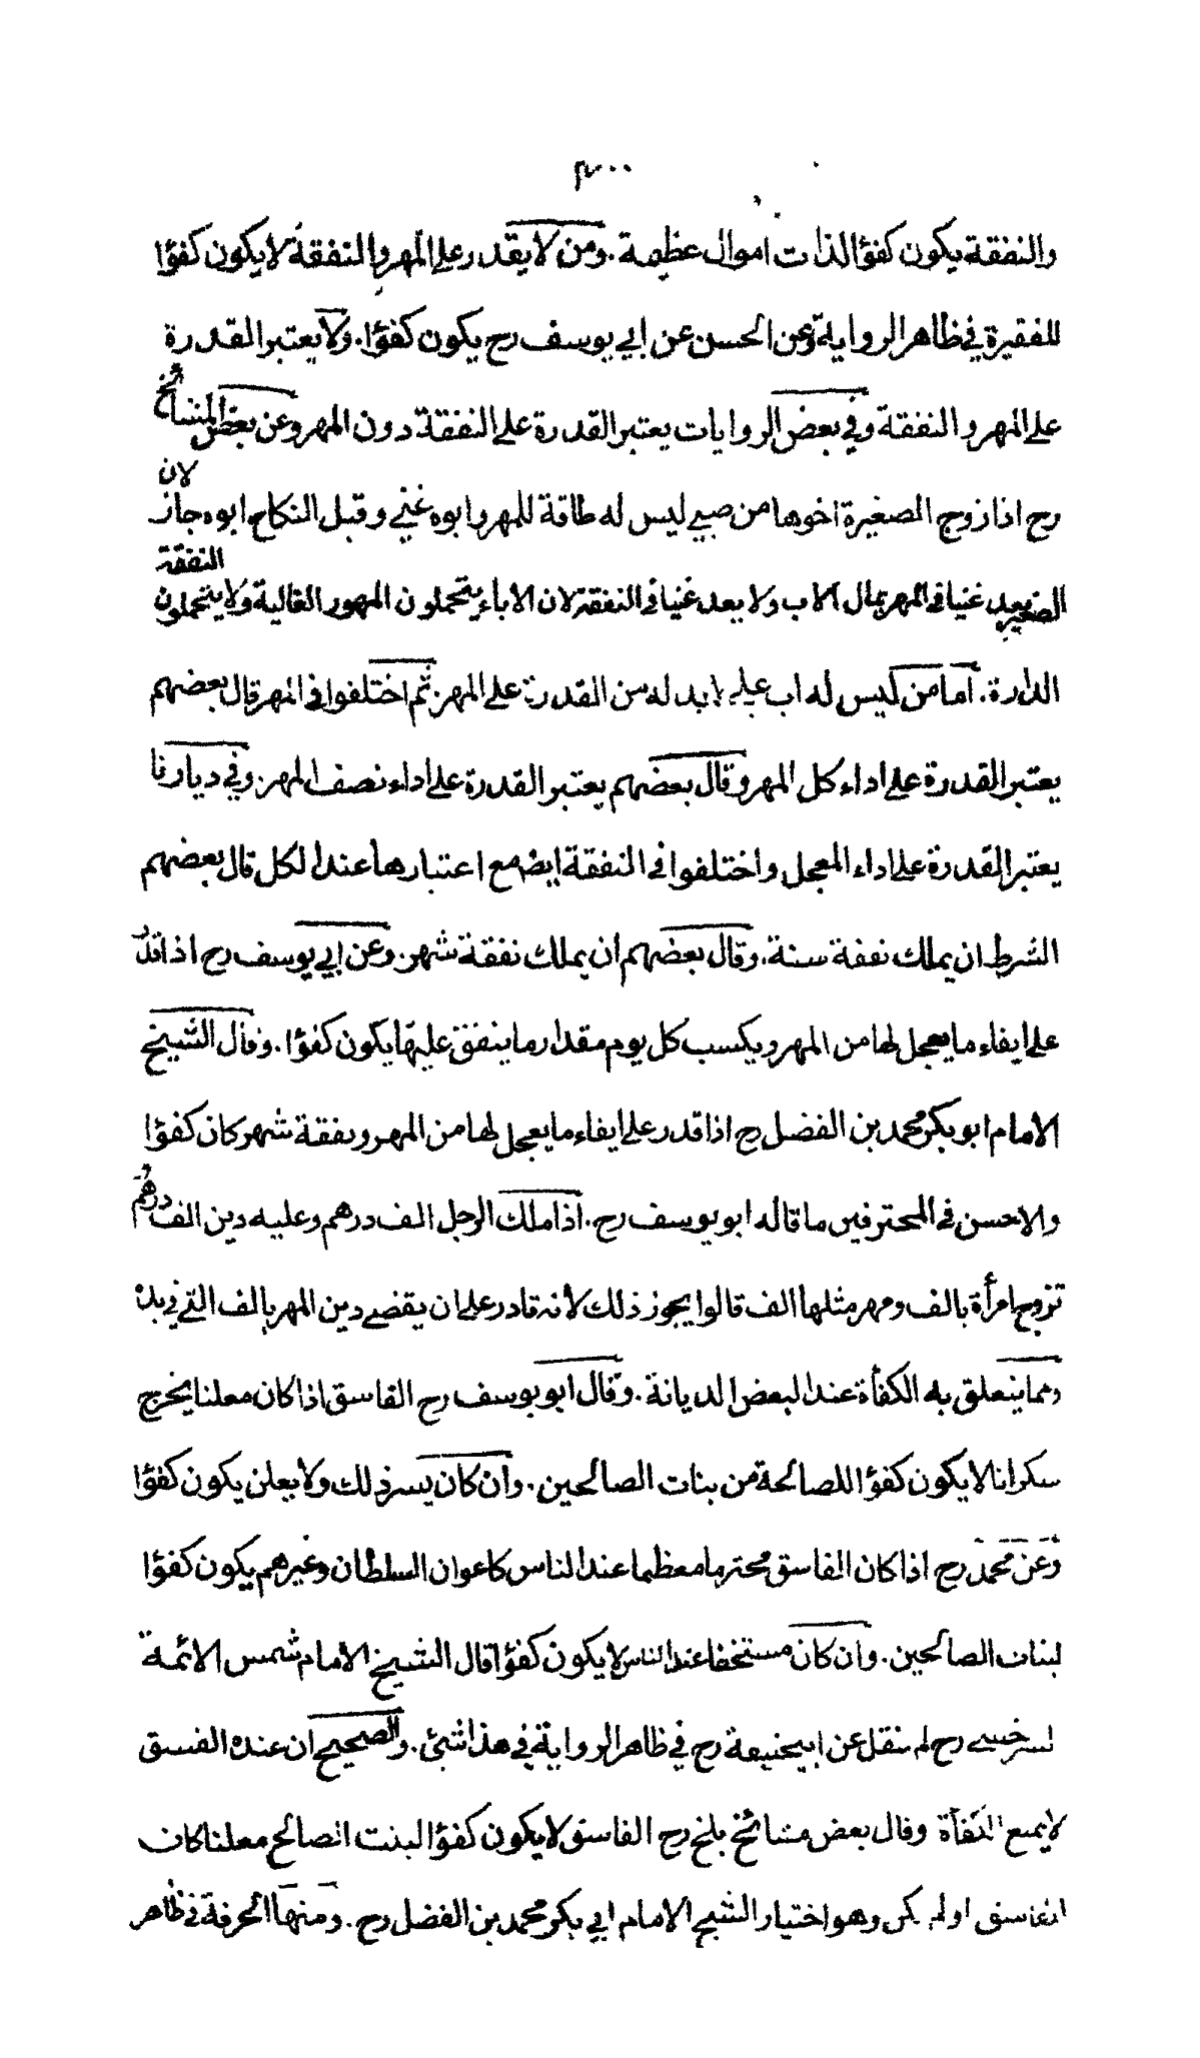 ٣٠٠
والنفقة يكون كفؤا لذات اموال عظيمة. ومن لا يقدر على المهر والنفقة لا يكون كفؤا
للفقيرة في ظاهر الرواية وعن الحسن عن ابي يوسف رح يكون كفؤا. ولا يعتبر القدرة
على المهر والنفقة وفي بعض الروايات يعتبر القدرة على النفقة دون المهر وعن بعض المشائخ
رح اذا زوج الصغيرة اخوها من صبي ليس له طاقة للمهر وابوه غني وقبل النكاح ابوه جاز لان
الصغير يعد غنيا في المهر بمال الاب ولا يعد غنيا في النفقة لان الاباء يتحملون المهور الغالية ولا يتحملون النفقة
الدارة. اما من ليس له اب عليه لابد له من القدرة على المهر. ثم اختلفوا في المهر قال بعضهم
يعتبر القدرة على اداء كل المهر وقال بعضهم يعتبر القدرة على اداء نصف المهر. وفي ديارنا
يعتبر القدرة على اداء المعجل واختلفوا في النفقة ايضا مع اعتبارها عند الكل قال بعضهم
الشرط ان يملك نفقة سنة. وقال بعضهم ان يملك نفقة شهر. وعن ابي يوسف رح اذا قدر
على ايفاء ما يعجل لها من المهر ويكسب كل يوم مقدار ما ينفق عليها يكون كفؤا. وقال الشيخ
الامام ابو بكر محمد بن الفضل رح اذا قدر على ايفاء ما يعجل لها من المهر ونفقة شهر كان كفؤا
والاحسن في المحترفين ما قاله ابو يوسف رح. اذا ملك الرجل الف درهم وعليه دين الف درهم
تزوج امرأة بالف ومهر مثلها الف قالوا يجوز ذلك لانه قادر على ان يقضي دين المهر بالف التي في يده
ومما يتعلق به الكفأة عند البعض الديانة. وقال ابو يوسف رح الفاسق اذا كان معلنا يخرج
سكرانا لا يكون كفؤا للصالحة من بنات الصالحين. وان كان يسر ذلك ولا يعلن يكون كفؤا
وعن محمد رح اذا كان الفاسق محترما معظما عند الناس كاعوان السلطان وغيرهم يكون كفؤا
لبنات الصالحين. وان كان مستخفا عند الناس لا يكون كفؤا قال الشيخ الامام شمس الائمة
السرخسي رح لم ينقل عن ابيحنيفة رح في ظاهر الرواية في هذا شئ. والصحيح ان عنده الفسق
لا يمنع الكفأة وقال بعض مشائخ بلخ رح الفاسق لا يكون كفؤا لبنت الصالح معلنا كان
الفاسق او لم يكن وهو اختيار الشيخ الامام ابي بكر محمد بن الفضل رح. ومنها الحرفة في ظاهر